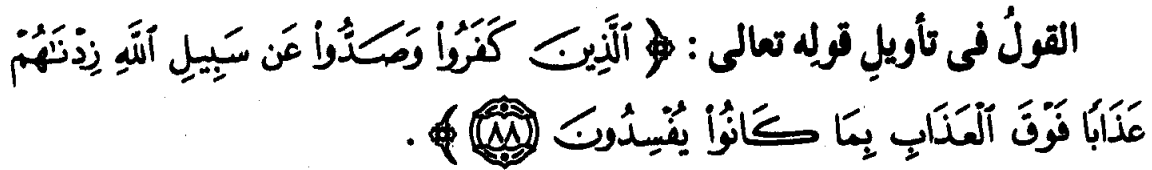 القولُ فى تأويلِ قولِه تعالى : ﴿ ٱلَّذِينَ كَفَرُوا۟ وَصَدُّوا۟ عَن سَبِيلِ ٱللَّهِ زِدْنَٰهُمْ
عَذَابًا فَوْقَ ٱلْعَذَابِ بِمَا كَانُوا۟ يُفْسِدُونَ ٨٨ ﴾ .